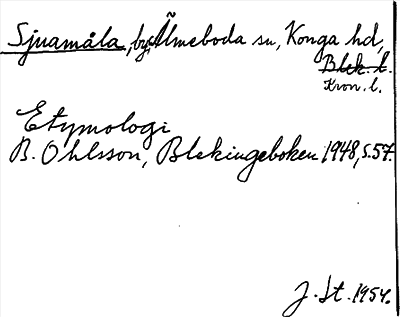 Sjuamåla, by, Älmeboda sn, Konga hd,
Blek. l.
Kron. l.
Etymologi
B. Ohlsson, Blekingeboken 1948, s. 57.
J. St. 1954.